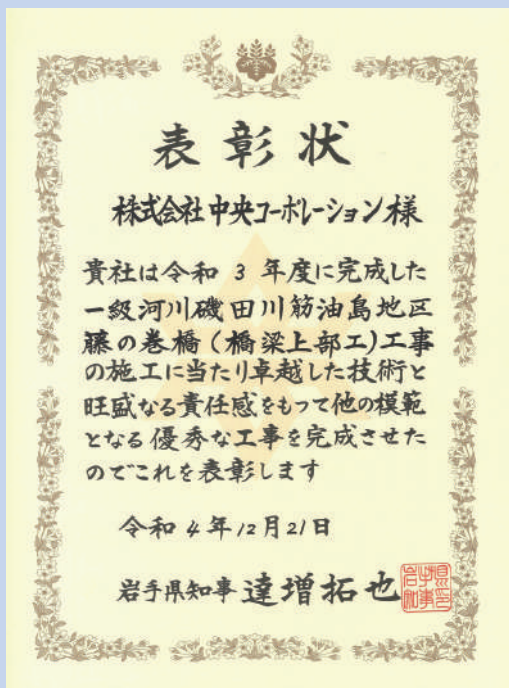 表彰状
株式会社中央コーポレーション様
貴社は令和3年度に完成した
一級河川磯田川筋油島地区
藤の巻橋(橋梁上部工)工事
の施工に当たり卓越した技術と
旺盛なる責任感をもって他の模範
となる優秀な工事を完成させた
のでこれを表彰します
令和4年12月21日
岩手県知事 達増拓也